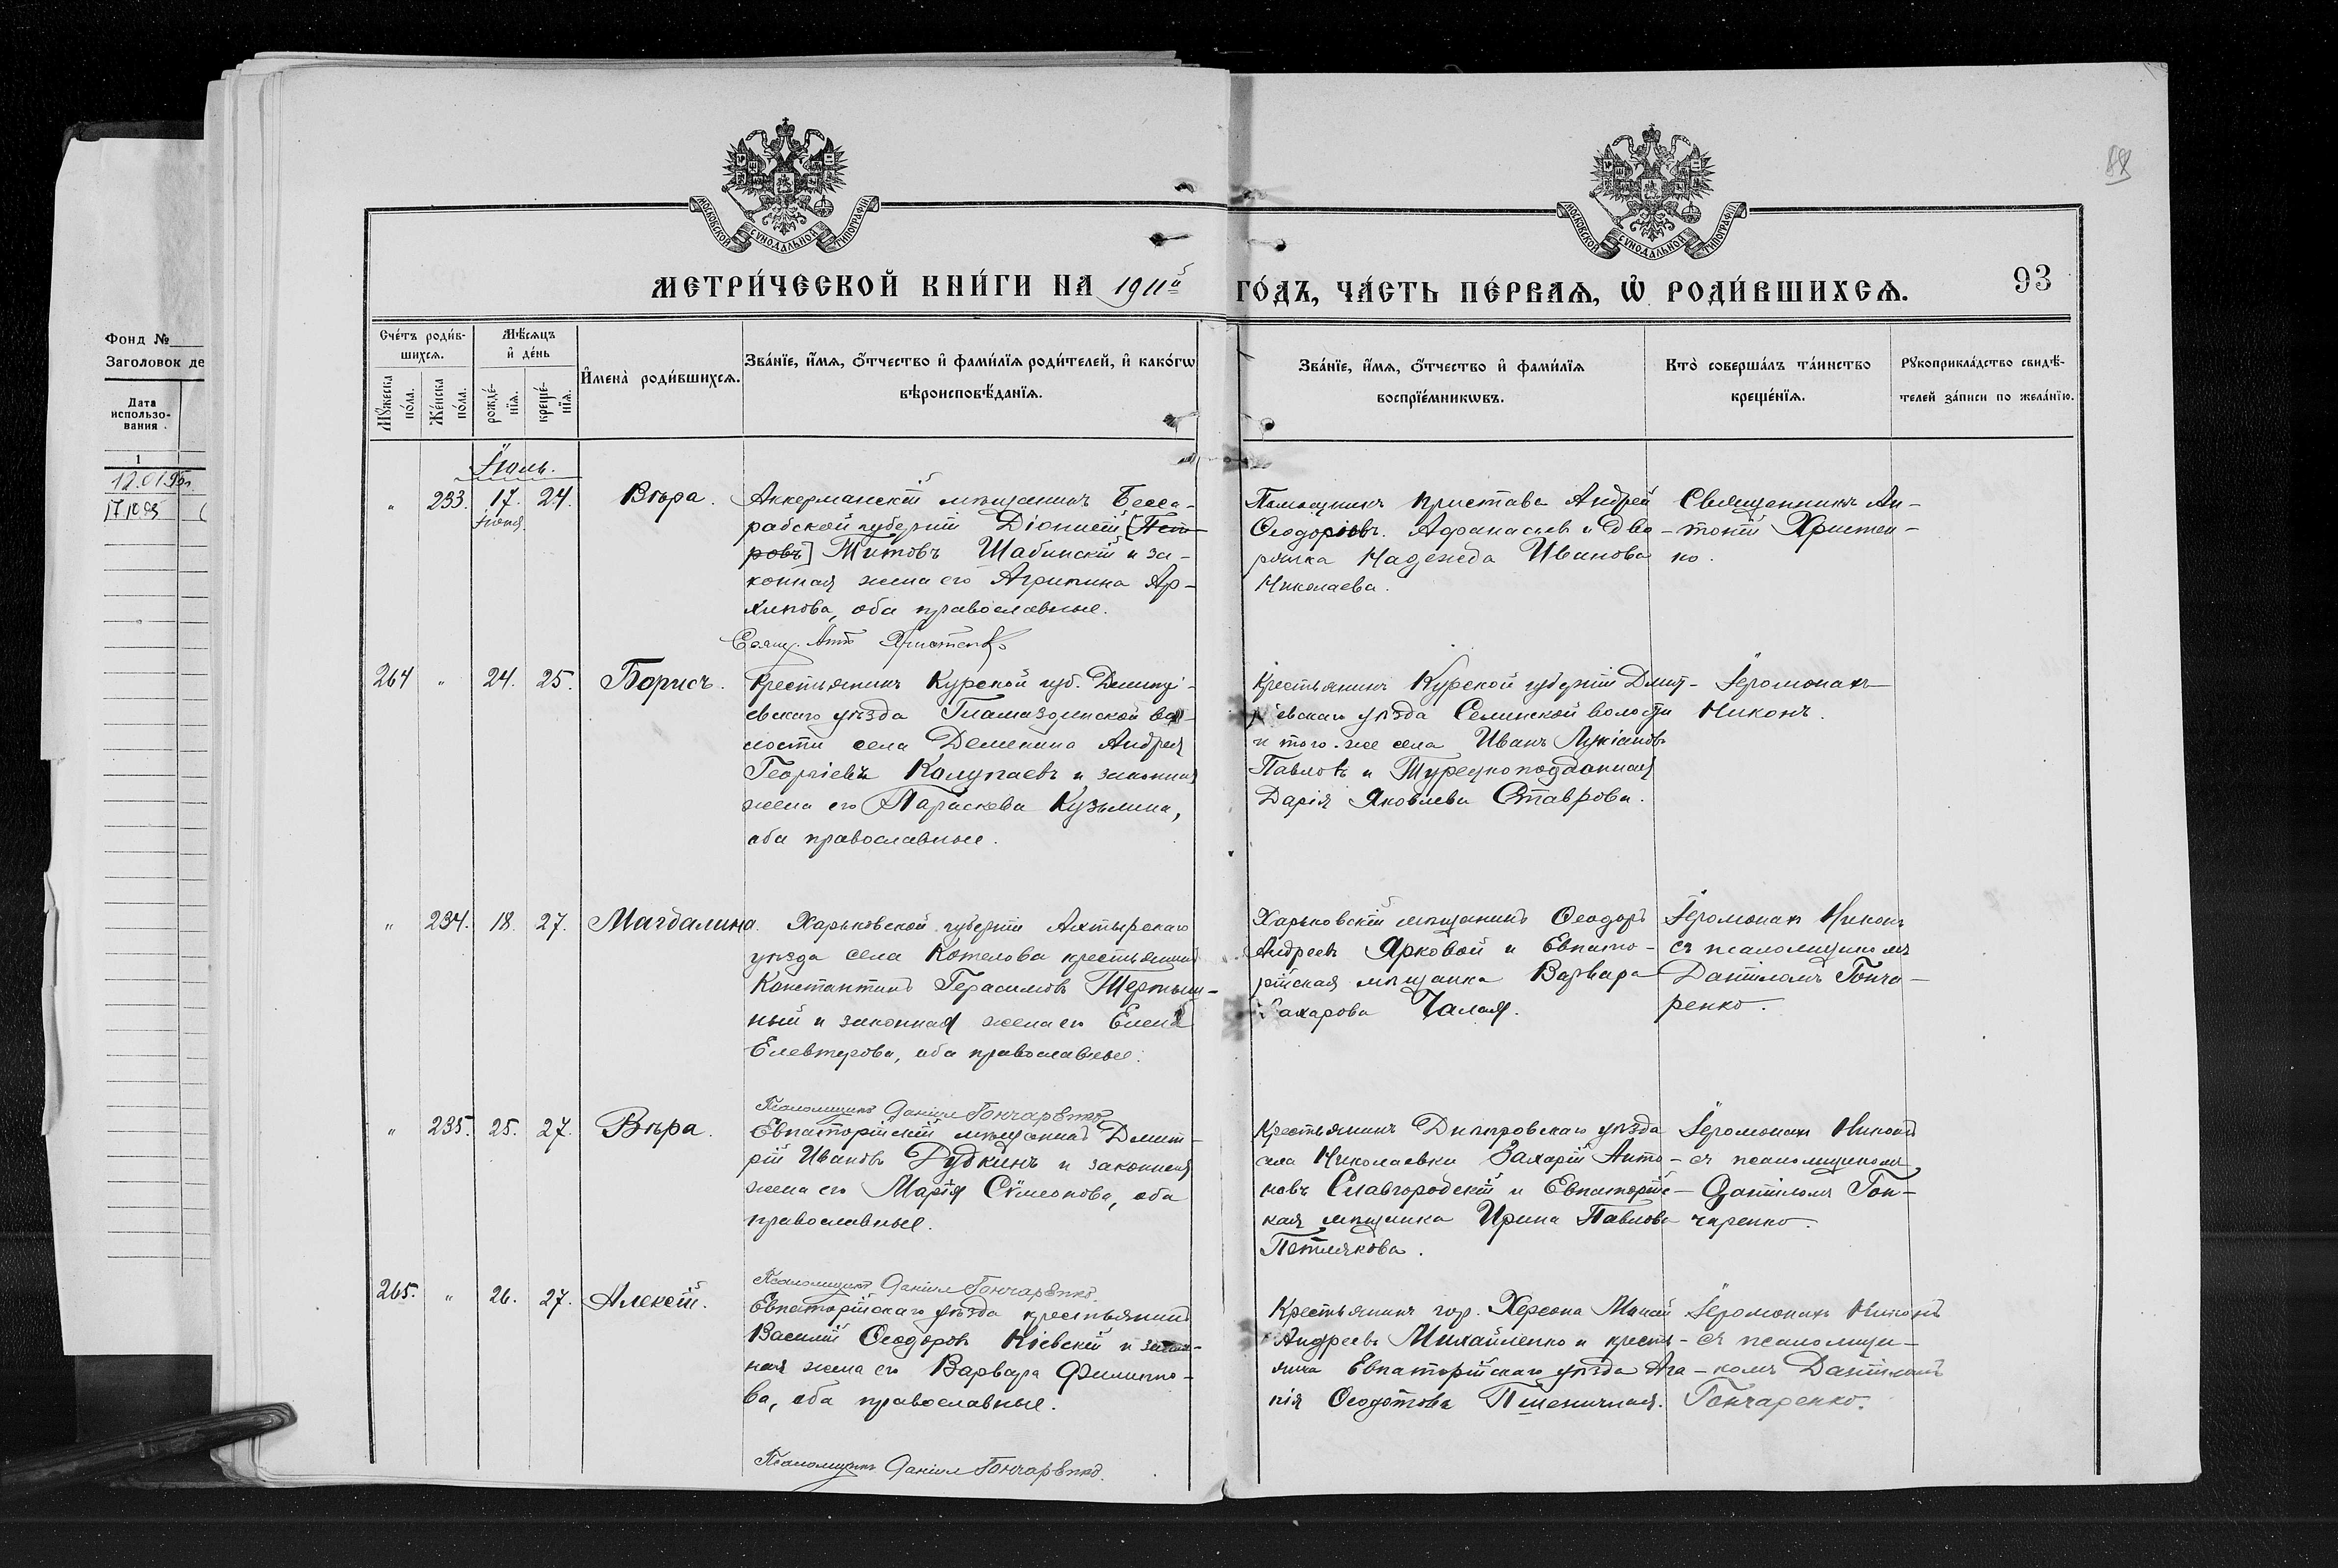 88
МОСКОВСКОЙ СѴНОДАЛЬНОЙ ТИПОГРАФІИ
МОСКОВСКОЙ СѴНОДАЛЬНОЙ ТИПОГРАФІИ
МЕТРИ́ЧЕСКОЙ КНИ́ГИ НА 1911й ГО́ДЪ, ЧА́СТЬ ПЕ́РВАѦ, Ѡ РОДИ́ВШИХСѦ.
93
Фонд №
Заголовок де
Дата
использо-
вания
1
Сче́тъ роди́в-
шихсѧ.
Мꙋ́жеска
по́ла.
Же́нска
по́ла.
Мѣ́сѧцъ
и҆ де́нь
рожде́-
нїѧ.
креще́-
нїѧ.
И҆мена̀ роди́вшихсѧ.
Зва́нїе, и҆́мѧ, ѻ҆́тчество и҆ фами́лїѧ роди́телей, и҆ како́гѡ
вѣроисповѣ́данїѧ.
Зва́нїе, и҆́мѧ, ѻ҆́тчество и҆ фами́лїѧ
воспрїе́мникѡвъ.
Кто̀ соверша́лъ та́инство
креще́нїѧ.
Рꙋкоприкла́дство свидѣ́-
телей за́писи по жела́нїю.
Іюль.
" 233. 17. 24. Вѣра.
Іюня.
Аккерманскій мѣщанинъ Бесса-
рабской губерніи Діонисій [Пет-
ровъ] Титовъ Шабинскій и за-
конная жена его Агрипина Ар-
хипова, оба православные.
Свящ. Ант Христенко
Помощникъ пристава Андрей
Ѳеодоровъ Афанасьевъ и Дво-
рянка Надежда Иванова
Николаева.
Священникъ Ан-
тоній Христен-
ко.
264 " 24. 25. Борисъ.
Крестьянинъ Курской губ. Дмитрі-
евскаго уѣзда Гламаздинской во-
лости села Деменино Андрей
Георгіевъ Колупаевъ и законная
жена его Параскева Кузьмина,
оба православные.
Крестьянинъ Курской губерніи Дмит-
ріевскаго уѣзда Селинской волости
и того-же села Иванъ Лукіановъ
Павловъ и Турецкоподданная
Дарія Яковлева Ставрова.
Іеромонахъ
Никонъ.
" 234. 18. 27. Магдалина.
Харьковской губерніи Ахтырскаго
уѣзда села Котелова крестьянинъ
Константинъ Герасимовъ
ный и законная жена его Елена
Елевтерова, оба православные.
Псаломщикъ Даніилъ Гончаренко
Харьковскій мѣщанинъ Ѳеодоръ
Андреевъ Ярковой и Евпато-
рійская мѣщанка Варвара
Захарова Чалая.
Іеромонахъ Никонъ
съ псаломщикомъ
Даніиломъ Гонча-
ренко.
" 235. 25. 27. Вѣра.
Евпаторійскій мѣщанинъ Дмит-
рій Ивановъ Дудкинъ и законная
жена его Марія Сѵмеонова, оба
православные.
Псаломщикъ Даніилъ Гончаренко.
Крестьянинъ Днѣпровскаго уѣзда
села Николаевки Захарій Анто-
новъ Славгородскій и Евпаторійс-
кая мѣщанка Ирина Павлова
Петлякова.
Іеромонахъ Никонъ
съ псаломщикомъ
Даніиломъ Гон-
чаренко.
265. " 26. 27. Алексій.
Евпаторійскаго уѣзда крестьянинъ
Василій Ѳеодоровъ Кіевскій и закон-
ная жена его Варвара Филиппо-
ва, оба православные.
Псаломщикъ Даніилъ Гончаренко.
Крестьянинъ гор. Херсона Минай
Андреевъ Михайленко и кресть-
янка Евпаторійскаго уѣзда Ага-
пія Ѳеодотова Пшеничная.
Іеромонахъ Никонъ
съ псаломщи-
комъ Даніиломъ
Гончаренко.